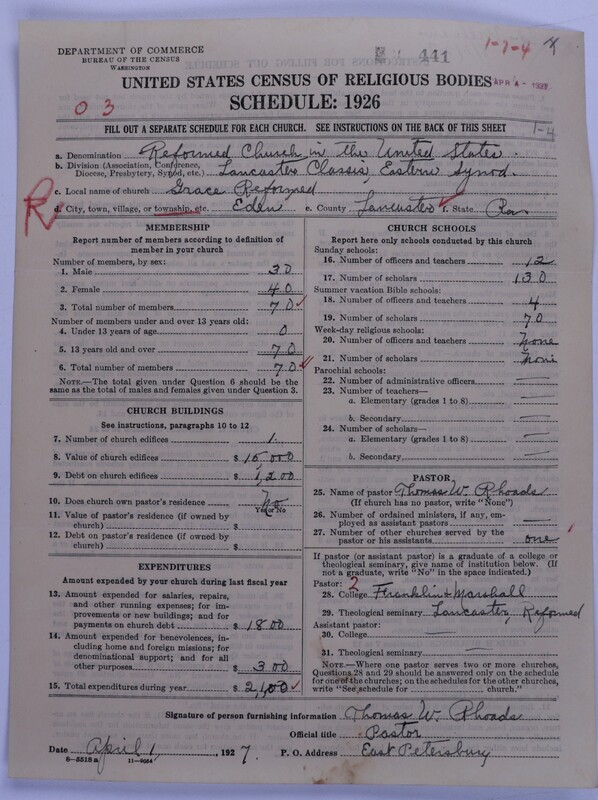 DEPARTMENT OF COMMERCE
BUREAU OF THE CENSUS
WASHINGTON
441
1-7-4
UNITED STATES CENSUS OF RELIGIOUS BODIES
APR 4 - 1927
SCHEDULE: 1926
0 3
FILL OUT A SEPARATE SCHEDULE FOR EACH CHURCH. SEE INSTRUCTIONS ON THE BACK OF THIS SHEET
1-4
a. Denomination Reformed Church in the United States.
b. Division (Association, Conference, Diocese, Presbytery, Synod, etc.) Lancaster Classis, Eastern Synod.
c. Local name of church Grace Reformed
R
d. City, town, village, or township, etc. Eden e. County Lancaster f. State Pa.
MEMBERSHIP
Report number of members according to definition of member in your church
Number of members, by sex:
1. Male 30
2. Female 40
3. Total number of members 70
Number of members under and over 13 years old:
4. Under 13 years of age 0
5. 13 years old and over 70
6. Total number of members 70
NOTE.—The total given under Question 6 should be the same as the total of males and females given under Question 3.
CHURCH BUILDINGS
See instructions, paragraphs 10 to 12
7. Number of church edifices 1.
8. Value of church edifices $ 15,000
9. Debt on church edifices $ 1,200
10. Does church own pastor's residence No
Yes or No
11. Value of pastor's residence (if owned by church) $
12. Debt on pastor's residence (if owned by church) $
EXPENDITURES
Amount expended by your church during last fiscal year
13. Amount expended for salaries, repairs, and other running expenses; for improvements or new buildings; and for payments on church debt $ 1800
14. Amount expended for benevolences, including home and foreign missions; for denominational support; and for all other purposes $ 300
15. Total expenditures during year $ 2,100
CHURCH SCHOOLS
Report here only schools conducted by this church
Sunday schools:
16. Number of officers and teachers 12
17. Number of scholars 130
Summer vacation Bible schools:
18. Number of officers and teachers 4
19. Number of scholars 70
Week-day religious schools:
20. Number of officers and teachers None
21. Number of scholars None
Parochial schools:
22. Number of administrative officers —
23. Number of teachers—
a. Elementary (grades 1 to 8) —
b. Secondary —
24. Number of scholars—
a. Elementary (grades 1 to 8) —
b. Secondary —
PASTOR
25. Name of pastor Thomas W. Rhoads
(If church has no pastor, write "None")
26. Number of ordained ministers, if any, employed as assistant pastors —
27. Number of other churches served by the pastor or his assistants one
If pastor (or assistant pastor) is a graduate of a college or theological seminary, give name of institution below. (If not a graduate, write "No" in the space indicated.)
Pastor: 2
28. College Franklin & Marshall
29. Theological seminary Lancaster, Reformed
Assistant pastor:
30. College —
31. Theological seminary —
NOTE.—Where one pastor serves two or more churches, Questions 28 and 29 should be answered only on the schedule for one of the churches; on the schedules for the other churches, write "See schedule for ________ church."
Signature of person furnishing information Thomas W. Rhoads
Official title Pastor
Date April 1, 1927. P. O. Address East Petersburg
8-5518 a 11-9054